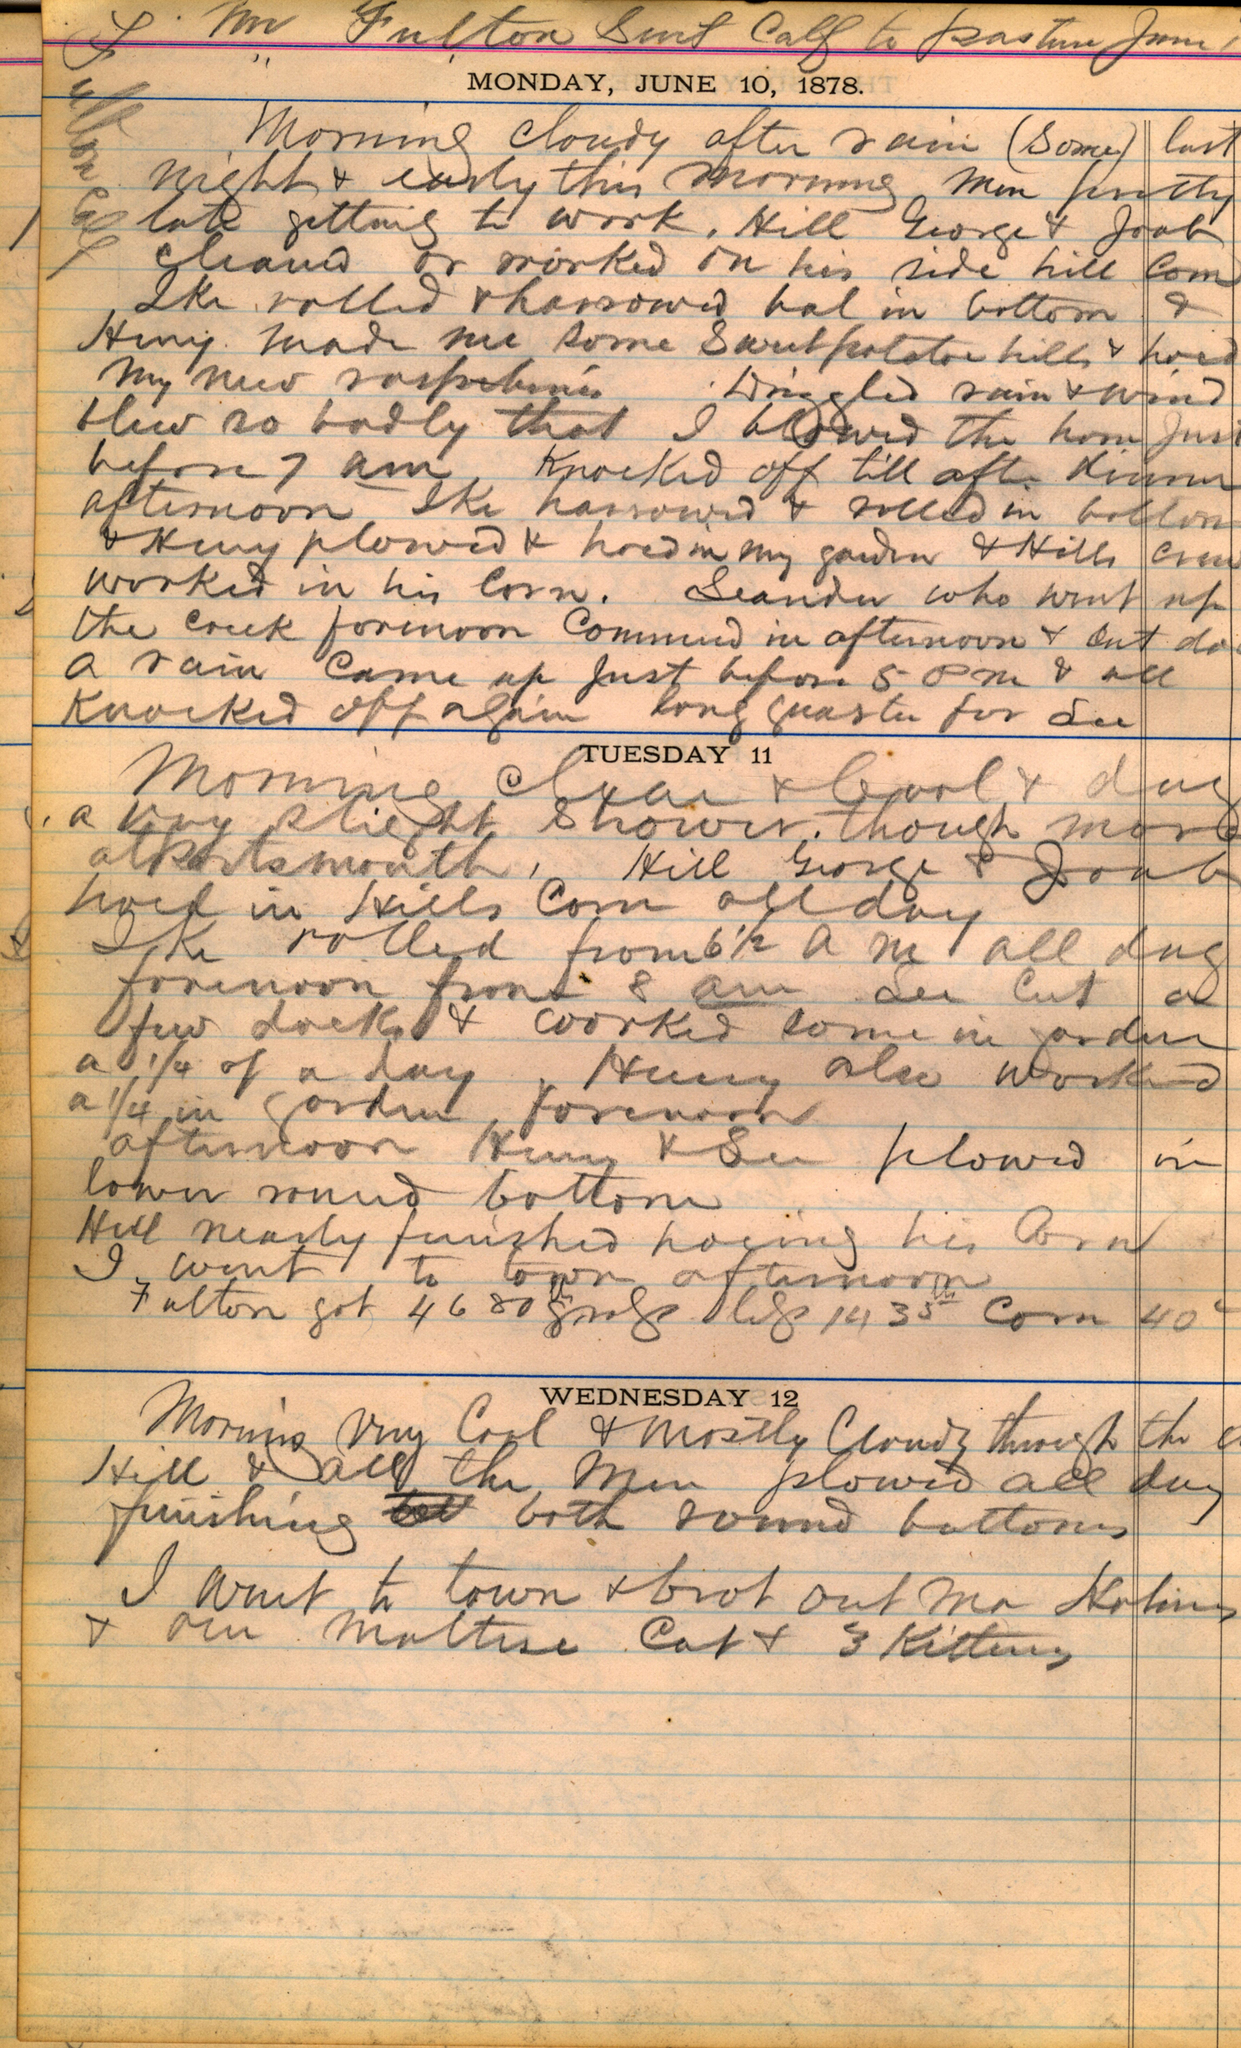 Mr Fulton Sent Calf to pasture June 1
Fulton Calf
MONDAY, JUNE 10, 1878.
Morning cloudy after rain (Some) last
night & early this morning Men pretty
late getting to work. Hill George & Joab
cleaned or worked on his side hill Corn
Ike rolled & harrowed bal in bottom &
Henry made me some Sweetpotatoe hills & hoed
my new raspberries . Drizzled rain & wind
blew so badly that I blowed the horn Just
before 7 am Knocked off till after dinner
afternoon Ike harrowed & rolled in bottom
& Henry plowed & hoed in my garden & Hills crew
worked in his Corn. Leander who went up
the creek forenoon Commenced in afternoon & cut
a rain Came up Just before 5 P m & all
Knocked off again long quarter for Lee
TUESDAY 11
Morning Clear & Cool & day
a very slight Shower. though more
at Portsmouth. Hill George & Joab
hoed in Hills Corn all day
Ike rolled from 6 1/2 A m all day
forenoon from 8 am Lee Cut a
few docks & worked some in garden
a 1/4 of a day . Henry also worked
a 1/4 in garden forenoon
afternoon Henry & Lee plowed in
lower round bottom
Hill nearly finished hoeing his Corn
I went to town afternoon
Fulton got 4680 Corn 40c
WEDNESDAY 12
Morning Very Cool & Mostly Cloudy through the
Hill & all the Men plowed all day
finishing both round bottoms
I went to town & brot out Ma
& our Maltese Cat & 3 Kittens